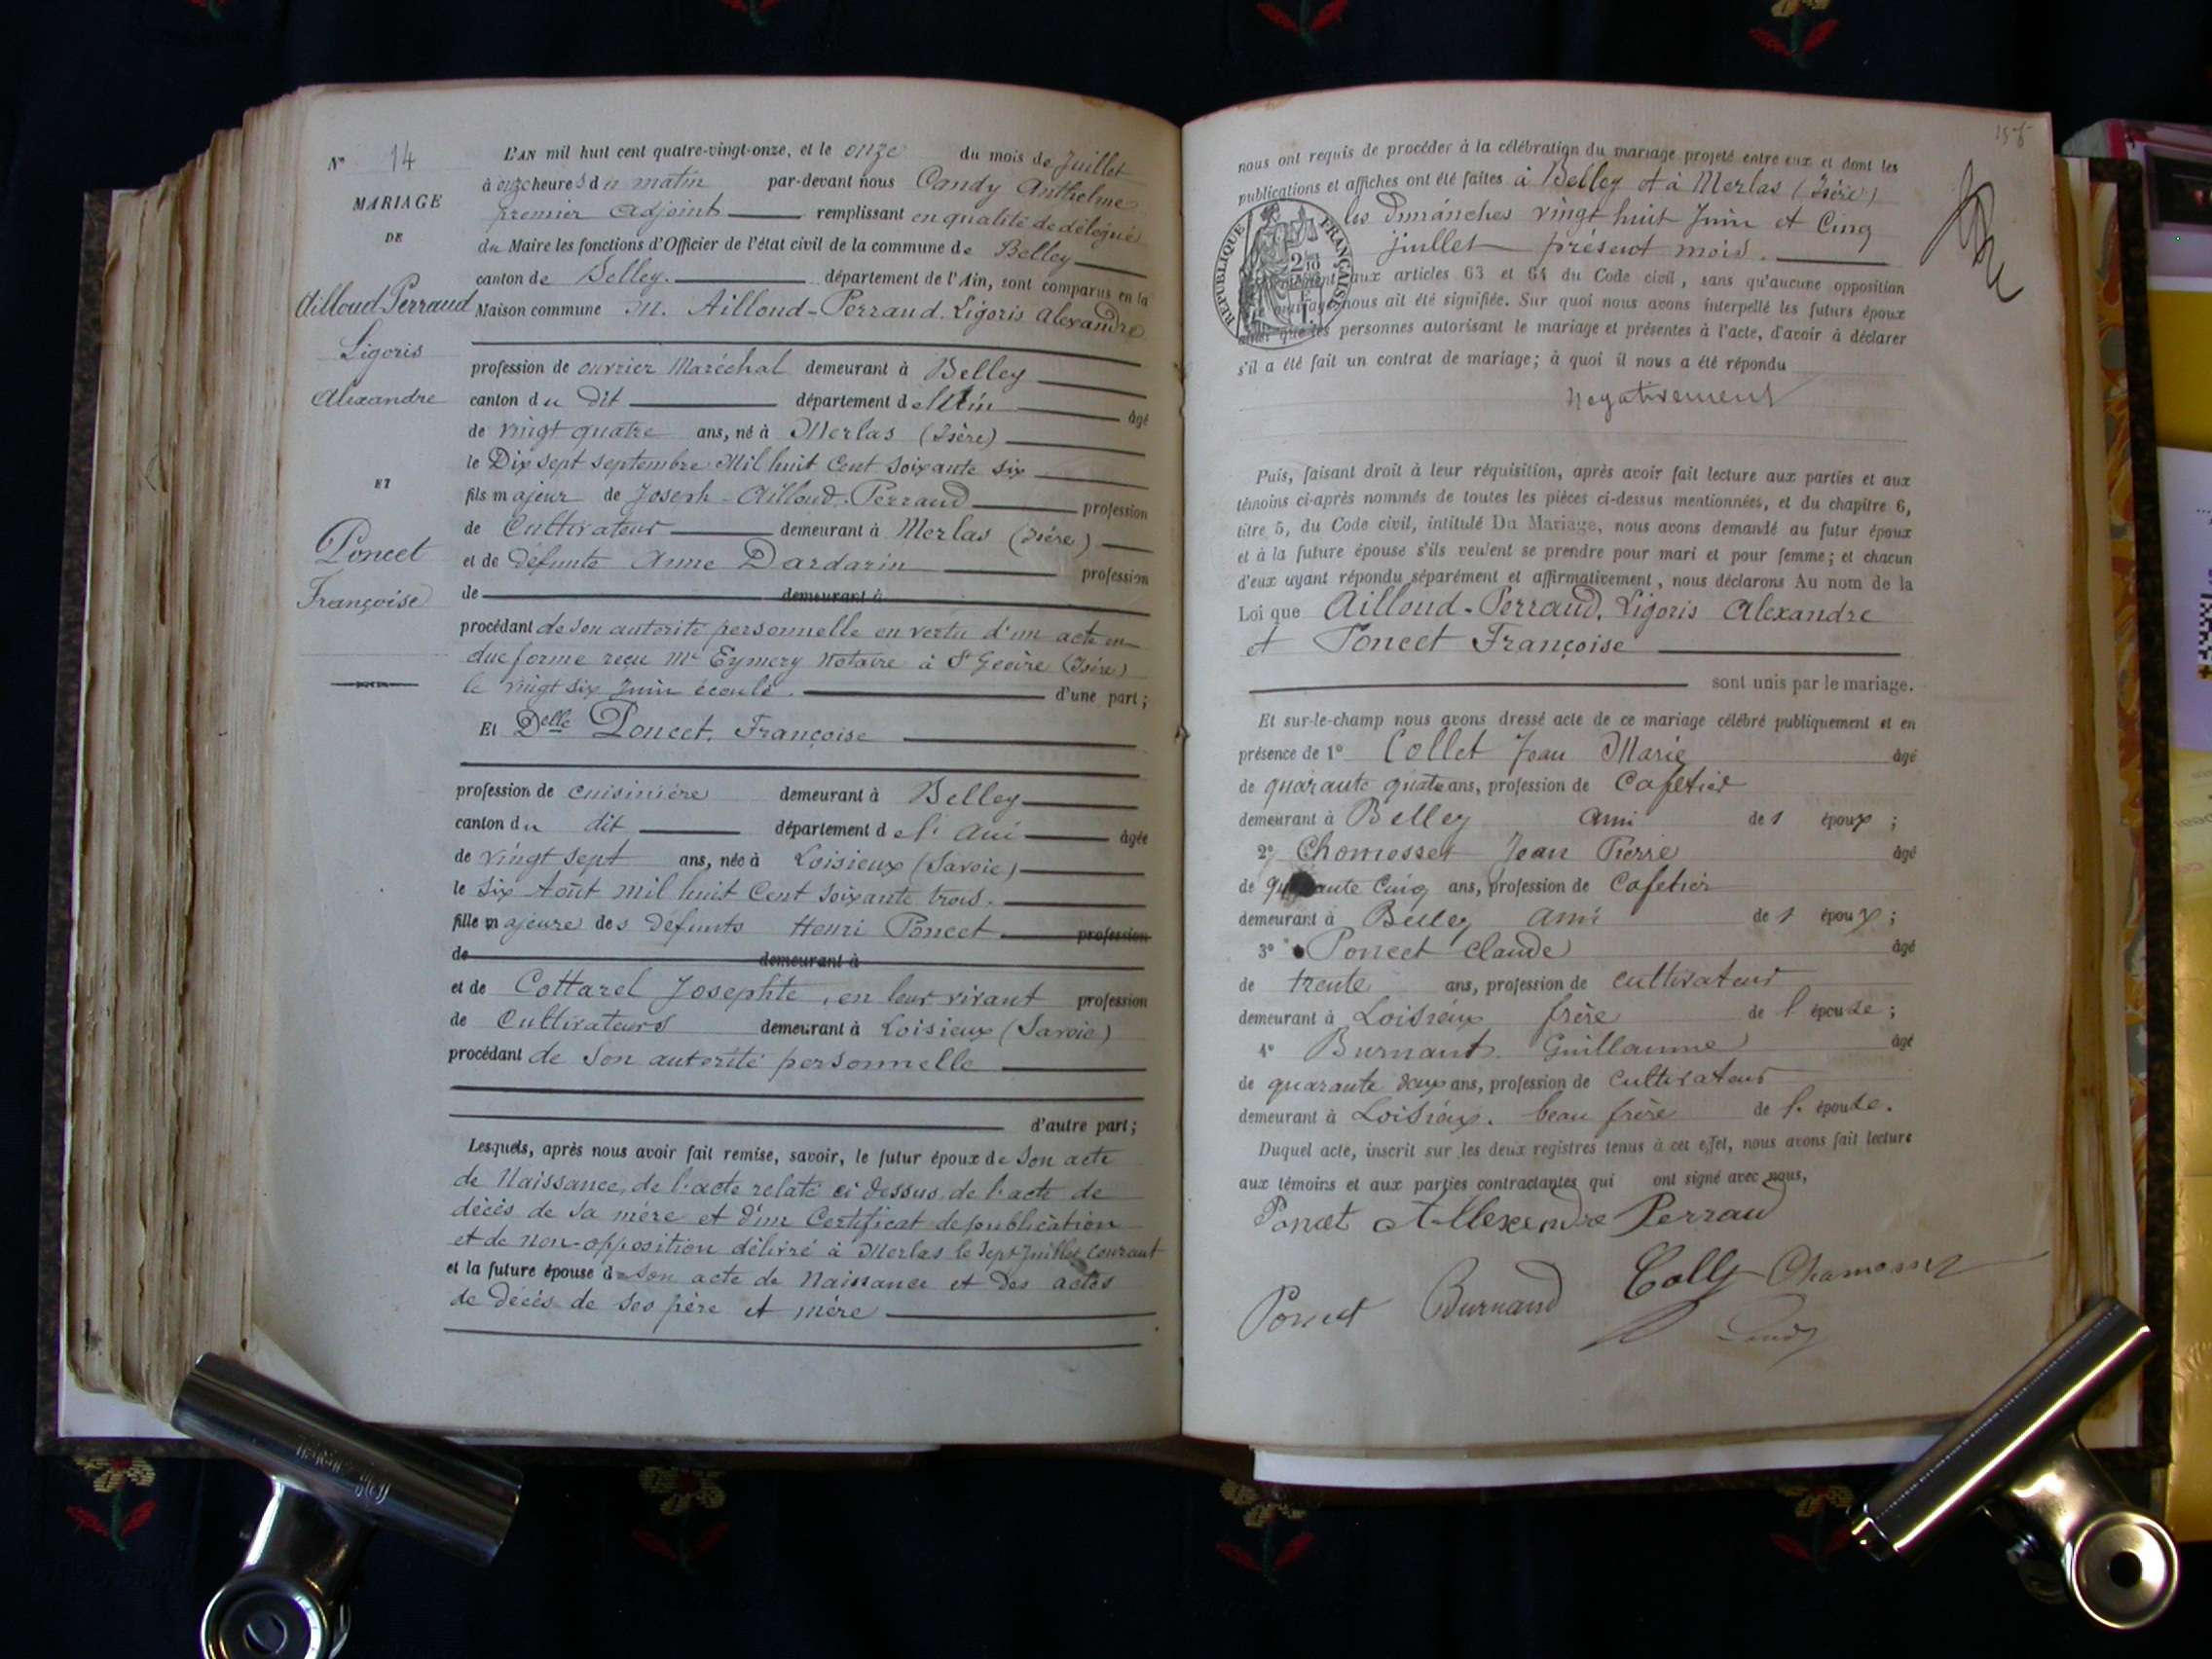 N° 14
MARIAGE
DE
Ailloud-Perraud
Ligoris
Alexandre
ET
Poncet
Françoise
L'AN mil huit cent quatre-vingt-onze, et le onze du mois de Juillet
à onze heures du matin par-devant nous Candy Anthelme
premier adjoint remplissant en qualité de délégué
du Maire les fonctions d'Officier de l'état civil de la commune de Belley
canton de Belley. département de l'Ain, sont comparus en la
Maison commune M. Ailloud-Perraud. Ligoris Alexandre
profession de ouvrier Maréchal demeurant à Belley
canton du dit département de l'Ain âgé
de vingt quatre ans, né à Merlas (Isère)
le Dix sept septembre Mil huit Cent soixante six
fils majeur de Joseph-Ailloud-Perraud profession
de Cultivateur demeurant à Merlas (Isère)
et de défunte Anne Dardarin profession
de demeurant à
procédant de son autorité personnelle en vertu d'un acte en
due forme reçu Me Eymery Notaire à St Geoire (Isère)
le vingt six Juin écoulé. d'une part;
Et Delle Poncet, Françoise
profession de cuisinière demeurant à Belley
canton du dit département de l'Ain âgée
de vingt sept ans, née à Loisieux (Savoie)
le six Août mil huit Cent soixante trois.
fille majeure des défunts Henri Poncet profession
de demeurant à
et de Cottarel Josephte, en leur vivant profession
de Cultivateurs demeurant à Loisieux (Savoie)
procédant de son autorité personnelle
d'autre part;
Lesquels, après nous avoir fait remise, savoir, le futur époux de son acte
de Naissance, de l'acte relaté ci dessus, de l'acte de
décès de sa mère et d'un Certificat de publication
et de non-opposition délivré à Merlas le sept Juillet courant
et la future épouse de son acte de Naissance et des actes
de décès de ses père et mère
nous ont requis de procéder à la célébration du mariage projeté entre eux et dont les
publications et affiches ont été faites à Belley et à Merlas (Isère)
les Dimanches vingt huit Juin et Cinq
juillet présent mois.
RÉPUBLIQUE FRANÇAISE
aux articles 63 et 64 du Code civil, sans qu'aucune opposition
mariage nous ait été signifiée. Sur quoi nous avons interpellé les futurs époux
ainsi que les personnes autorisant le mariage et présentes à l'acte, d'avoir à déclarer
s'il a été fait un contrat de mariage; à quoi il nous a été répondu
négativement
Puis, faisant droit à leur réquisition, après avoir fait lecture aux parties et aux
témoins ci-après nommés de toutes les pièces ci-dessus mentionnées, et du chapitre 6,
titre 5, du Code civil, intitulé Du Mariage, nous avons demandé au futur époux
et à la future épouse s'ils veulent se prendre pour mari et pour femme; et chacun
d'eux ayant répondu séparément et affirmativement, nous déclarons Au nom de la
Loi que Ailloud-Perraud, Ligoris Alexandre
et Poncet Françoise
sont unis par le mariage.
Et sur-le-champ nous avons dressé acte de ce mariage célébré publiquement et en
présence de 1° Collet Jean Marie âgé
de quarante quatre ans, profession de Cafetier
demeurant à Belley ami de l époux;
2° Chomosset Jean Pierre âgé
de quarante Cinq ans, profession de Cafetier
demeurant à Belley ami de l époux;
3° Poncet Claude âgé
de trente ans, profession de cultivateur
demeurant à Loisieux frère de l épouse;
4° Burnant Guillaume âgé
de quarante deux ans, profession de cultivateur
demeurant à Loisieux. beau frère de l'épouse.
Duquel acte, inscrit sur les deux registres tenus à cet effet, nous avons fait lecture
aux témoins et aux parties contractantes qui ont signé avec nous,
Poncet Allexendre Perraud
Poncet Burnand Collet Chamosset
Candy